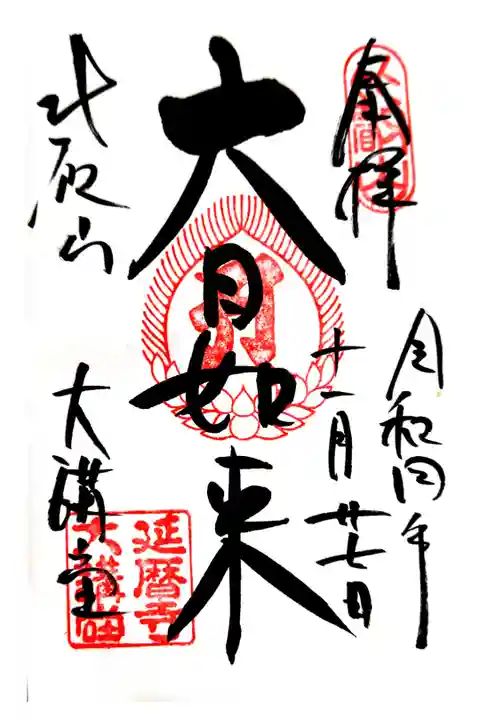 奉拝
令和四年
十一月廿七日
大日如来
比叡山
大講堂
延暦寺
大講堂